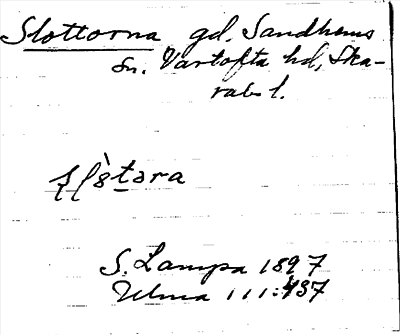 Slottorna gd. Sandhems
sn. Vartofta hd, Ska-
rab. l.
S. Lampa 1897
Ulma 111:437